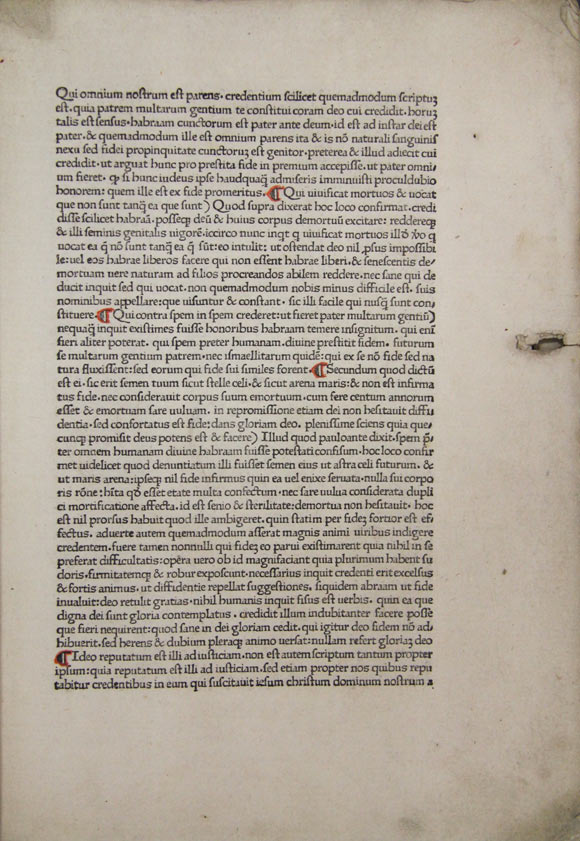 Qui omnium nostrum est parens· credentium scilicet quemadmodum scriptuꝫ
est· quia patrem multarum gentium te constitui coram deo cui credidit· horuꝫ
talis est sensus· habraam cunctorum est pater ante deum·id est ad instar dei est
pater· & quemadmodum ille est omnium parens ita & is nō naturali sanguinis
nexu sed fidei propinquitate cunctoruꝫ est genitor· preterea & illud adiecit cui
credidit· ut arguat hunc pro prestita fide in premium accepisse· ut pater omni,
um fieret· si hunc iudeus ipse haudquaq̄ admiseris imminuisti proculdubio
honorem: quem ille est ex fide promeritus· ¶ Qui uiuificat mortuos & uocat
que non sunt tanq̄ ea que sunt) Quod supra dixerat hoc loco confirmat· credi
disse scilicet habraā· posseqꝫ deū & huius corpus demortuū excitare: reddereqꝫ
& illi seminis genitalis uigorē·iccirco nunc inqt q uiuificat mortuos
uocat ea q̄ nō sunt tanq̄ ea q̄ sūt: eo intulit: ut ostendat deo nil ipsus impossibi
le: uel eos habrae liberos facere qui non essent habrae liberi· & senescentis de/
mortuam uere naturam ad filios procreandos abilem reddere· nec sane qui de
ducit inquit sed qui uocat· non quemadmodum nobis minus difficile est· suis
nominibus appellare: que uisuntur & constant· sic illi facile qui nusq̄ sunt con,
stituere· ¶ Qui contra spem in spem crederet: ut fieret pater multarum gentiū)
nequaq̄ inquit existimes fuisse honoribus habraam temere insignitum· qui eni
fieri aliter poterat· qui spem preter humanam· diuine prestitit fidem· futurum
se multarum gentium patrem· nec ismaellitarum quidē: qui ex se nō fide sed na
tura fluxissent: sed eorum qui fide sui similes forent· ¶ Secundum quod dictū
est ei· sic erit semen tuum sicut stelle celi· & sicut arena maris: & non est infirma
tus fide· nec considerauit corpus suum emortuum· cum fere centum annorum
esset & emortuam sare uuluam· in repromissione etiam dei non hesitauit diffi
dentia· sed confortatus est fide: dans gloriam deo· plenissime sciens quia que/
cunqꝫ promisit deus potens est & facere) Illud quod pauloante dixit· spem p̄
ter omnem humanam diuine habraam fuisse potestati confisum· hoc loco confir
met uidelicet quod denuntiatum illi fuisset semen eius ut astra celi futurum· &
ut maris arena: ipseqꝫ nil fide infirmus quin ea uel enixe seruata· nulla sui corpo
ris rōne: hīta esset etate multa confectum· nec sare uulua considerata dupli
ci mortificatione affecta· id est senio & sterilitate: demortua non hesitauit· hoc
est nil prorsus habuit quod ille ambigeret· quin statim per fideꝫ fortior est ef/
fectus· aduerte autem quemadmodum asserat magnis animi uiribus indigere
credentem· fuere tamen nonnulli qui fideꝫ eo parui existimarent quia nihil in se
preferat difficultatis: opēra uero ob id magnifaciant quia plurimum habent su
doris· firmitatemqꝫ & robur exposcunt· necessarius inquit credenti erit excelsus
& fortis animus· ut diffidentie repellat suggestiones· siquidem abraam ut fide
inualuit: deo retulit gratias· nihil humanis inquit fisus est uerbis· quin ea que
digna dei sunt gloria contemplatus· credidit illum indubitanter facere posse
que fieri nequirent: quod sane in dei gloriam cedit· qui igitur deo fidem nō ad,
hibuerit· sed herens & dubium pleraqꝫ animo uersat: nullam refert gloriaꝫ deo
¶ Ideo reputatum est illi ad iusticiam· non est autem scriptum tantum propter
ipsum: quia reputatum est illi ad iusticiam· sed etiam propter nos quibus repu
tabitur credentibus in eum qui suscitauit iesum christum dominum nostrum a